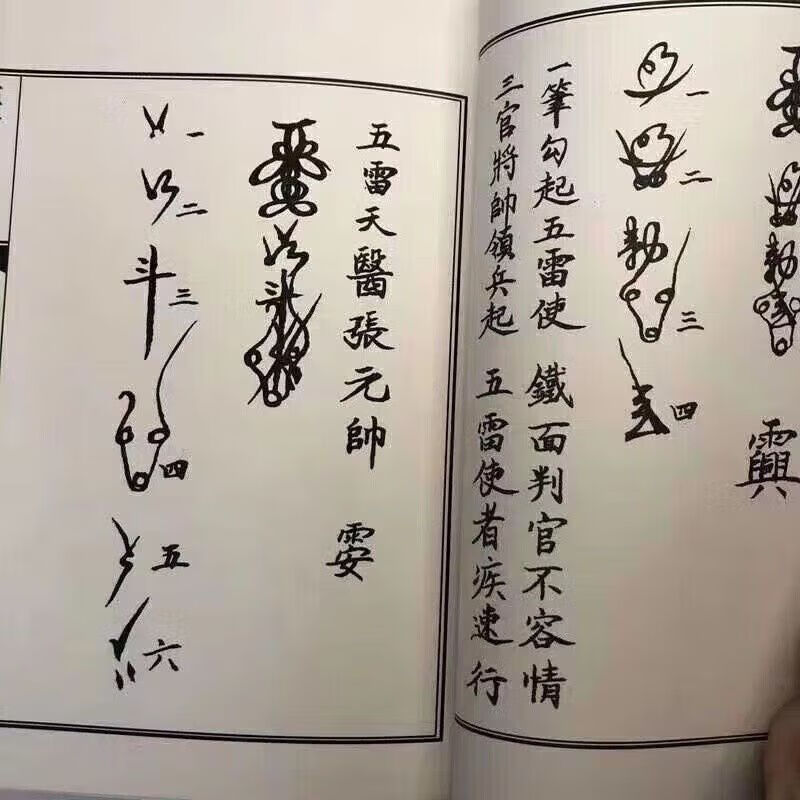 一
二
勅
三
四
一筆勾起五雷使 鐵面判官不容情
三官將帥領兵起 五雷使者疾速行
五雷天醫張元帥
一
二
斗三
四
五
六